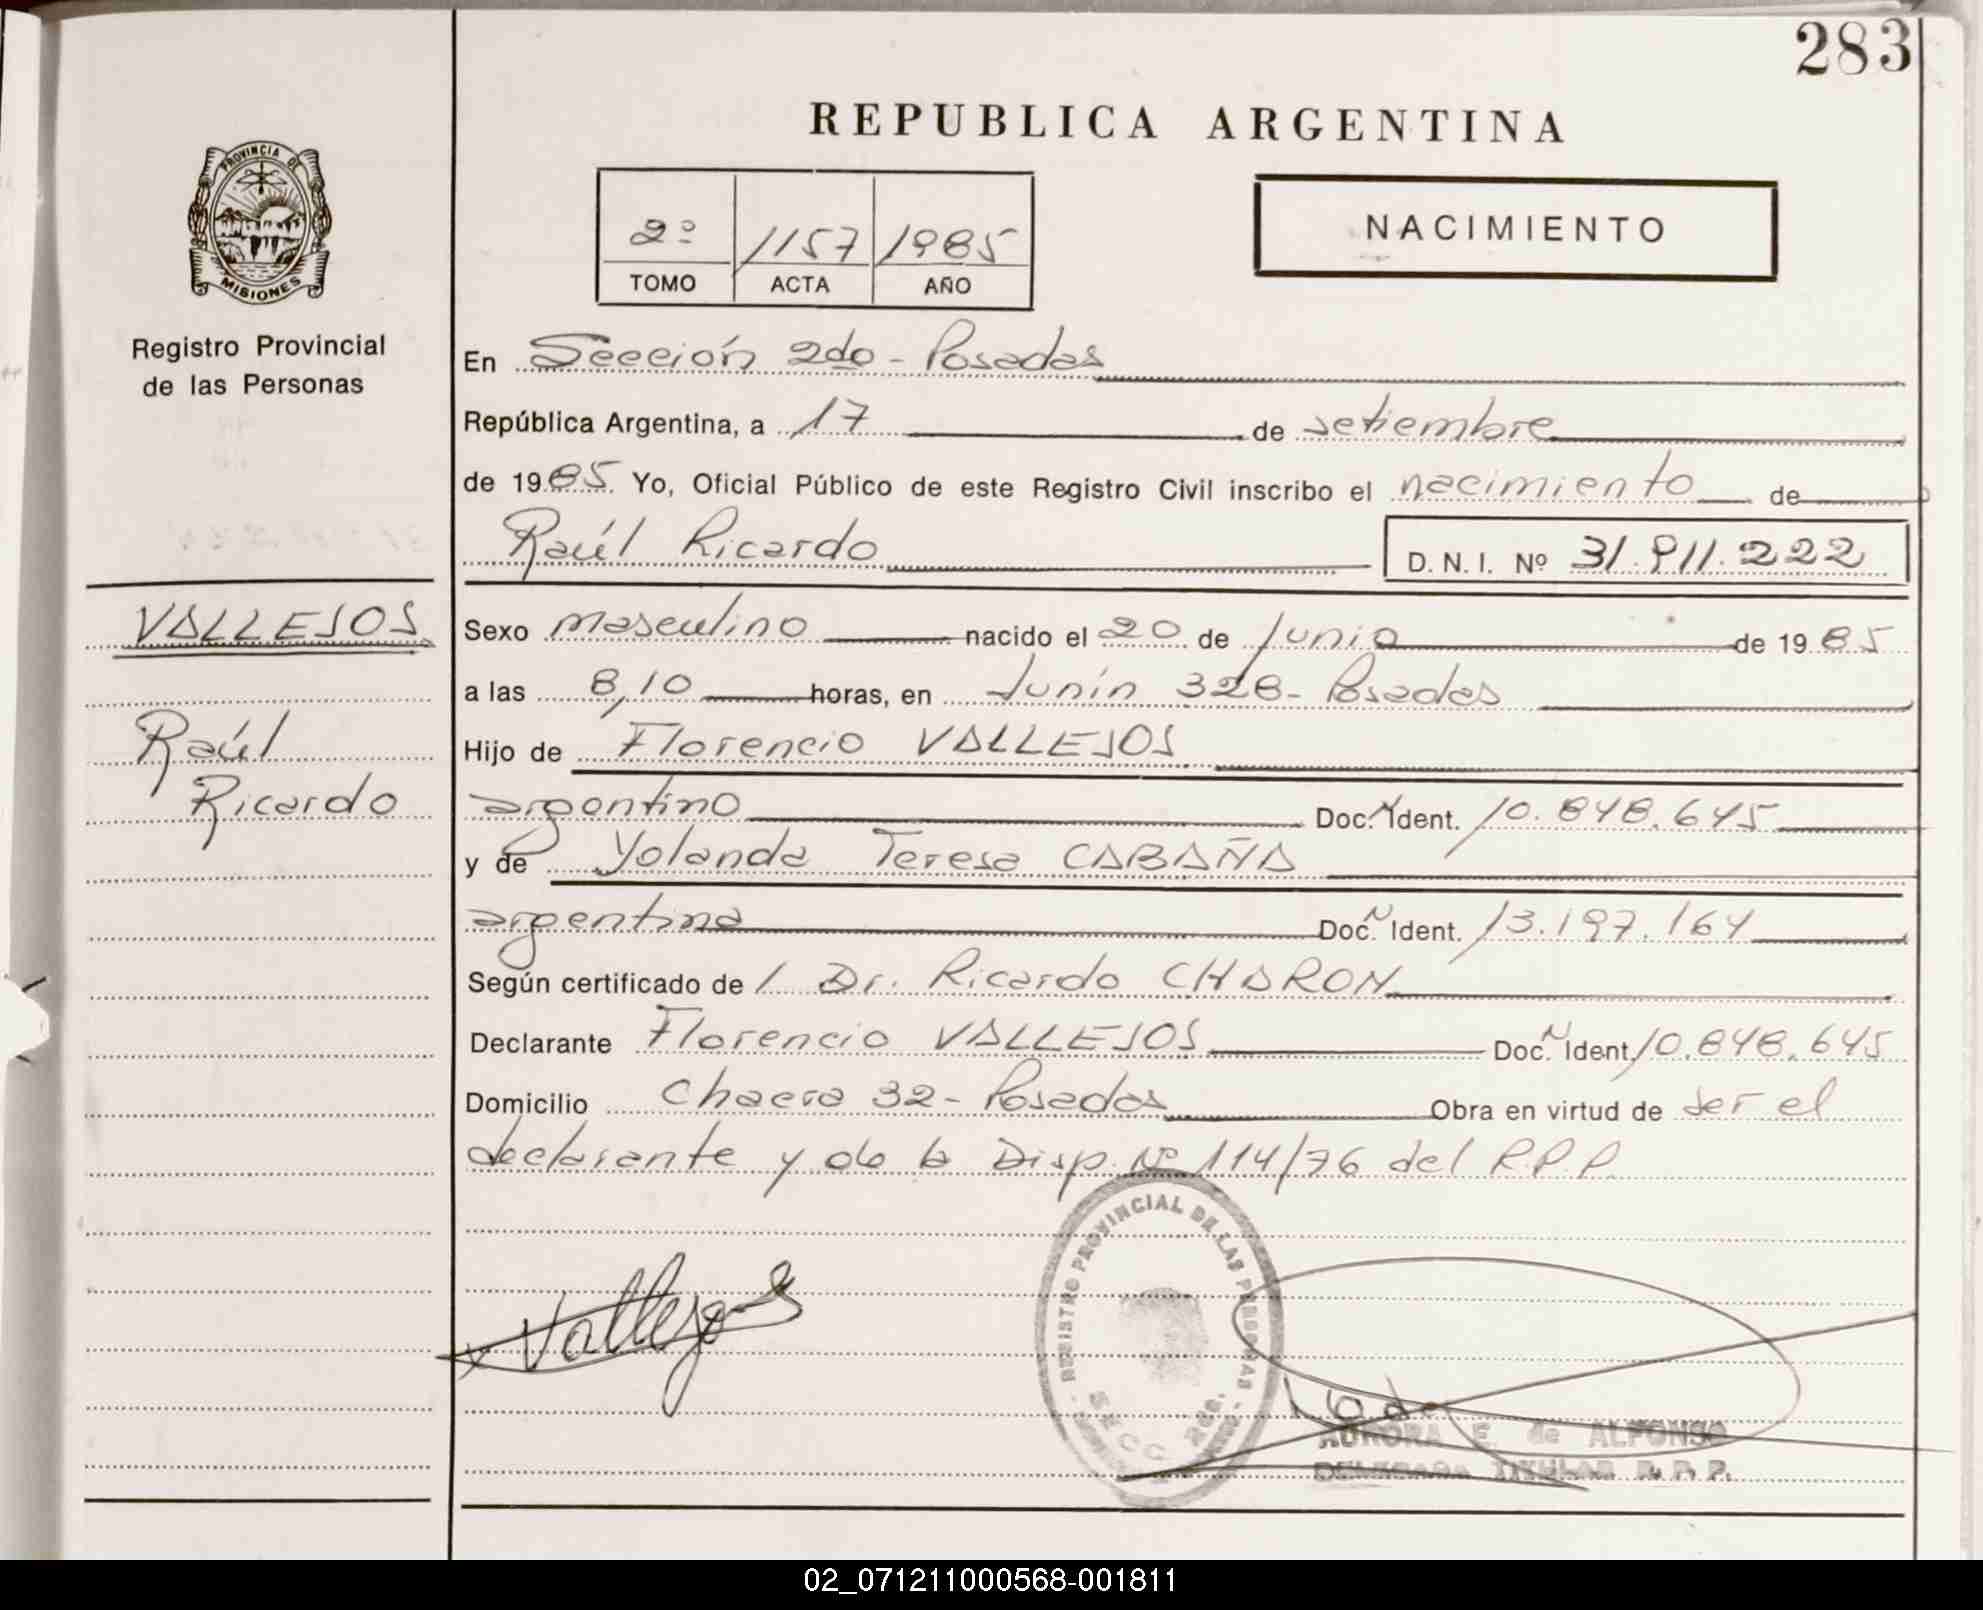 283
REPUBLICA ARGENTINA
PROVINCIA DE
MISIONES
Registro Provincial
de las Personas
2º 1157 1985
TOMO ACTA AÑO
NACIMIENTO
En Sección 2do - Posadas
República Argentina, a 17 de setiembre
de 1985 Yo, Oficial Público de este Registro Civil inscribo el nacimiento de
Raúl Ricardo D.N.I. Nº 31.911.222
VALLEJOS
Raúl
Ricardo
Sexo masculino nacido el 20 de Junio de 1985
a las 8,10 horas, en Junín 328 - Posadas
Hijo de Florencio VALLEJOS
argentino Doc. N Ident. 10.848.645
y de Yolanda Teresa CABAÑA
argentina Doc. N Ident. 13.197.164
Según certificado de / Dr. Ricardo CHARON
Declarante Florencio VALLEJOS Doc. N Ident. 10.848.645
Domicilio Chacra 32 - Posadas Obra en virtud de ser el
declarante y de la Disp. Nº 114/76 del R.P.P.
Vallejos
REGISTRO PROVINCIAL DE LAS PERSONAS
SECC. 2da.
AURORA E. de ALFONSO
DELEGADA TITULAR R. P. P.
02_071211000568-001811